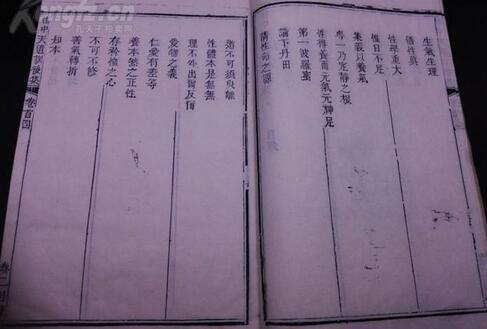 生氣生理
活性與
性學重大
惟日不足
集義以養氣
奪一乃定靜之根
性得養而元氣元神足
第一波羅蜜
論下丹田
活性命之源
道不可須臾離
性體本是虛無
理不外出爾反爾
愛物之義
仁愛有差等
養本然之正性
存矜憐之心
不可不修
善氣轉折
却本
天道
卷首四
Kongfz.cn